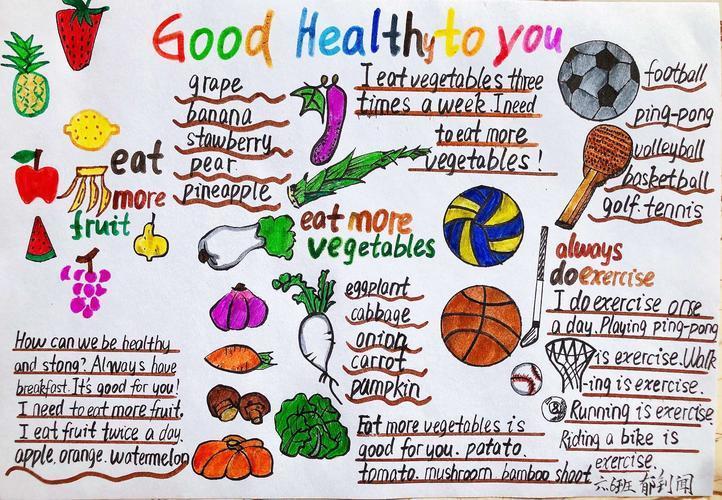 Good Healthy to you
grape
banana
stawberry
pear
pineapple
eat
more
fruit
I eat vegetables three
times a week. I need
to eat more
vegetables!
eat more
vegetables
eggplant
cabbage
onion
carrot
pumpkin
football
ping-pong
volleyball
basketball
golf. tennis
always
do exercise
I do exercise orse
a day. Playing ping-pong
is exercise. Walk
-ing is exercise.
Running is exercise
Riding a bike is
exercise.
How can we be healthy
and stong? Always have
breakfast. It's good for you!
I need to eat more fruit.
I eat fruit twice a day.
apple. orange. watermelon
Eat more vegetables is
good for you. patato.
tomato. mushroom bamboo shoot
六6班